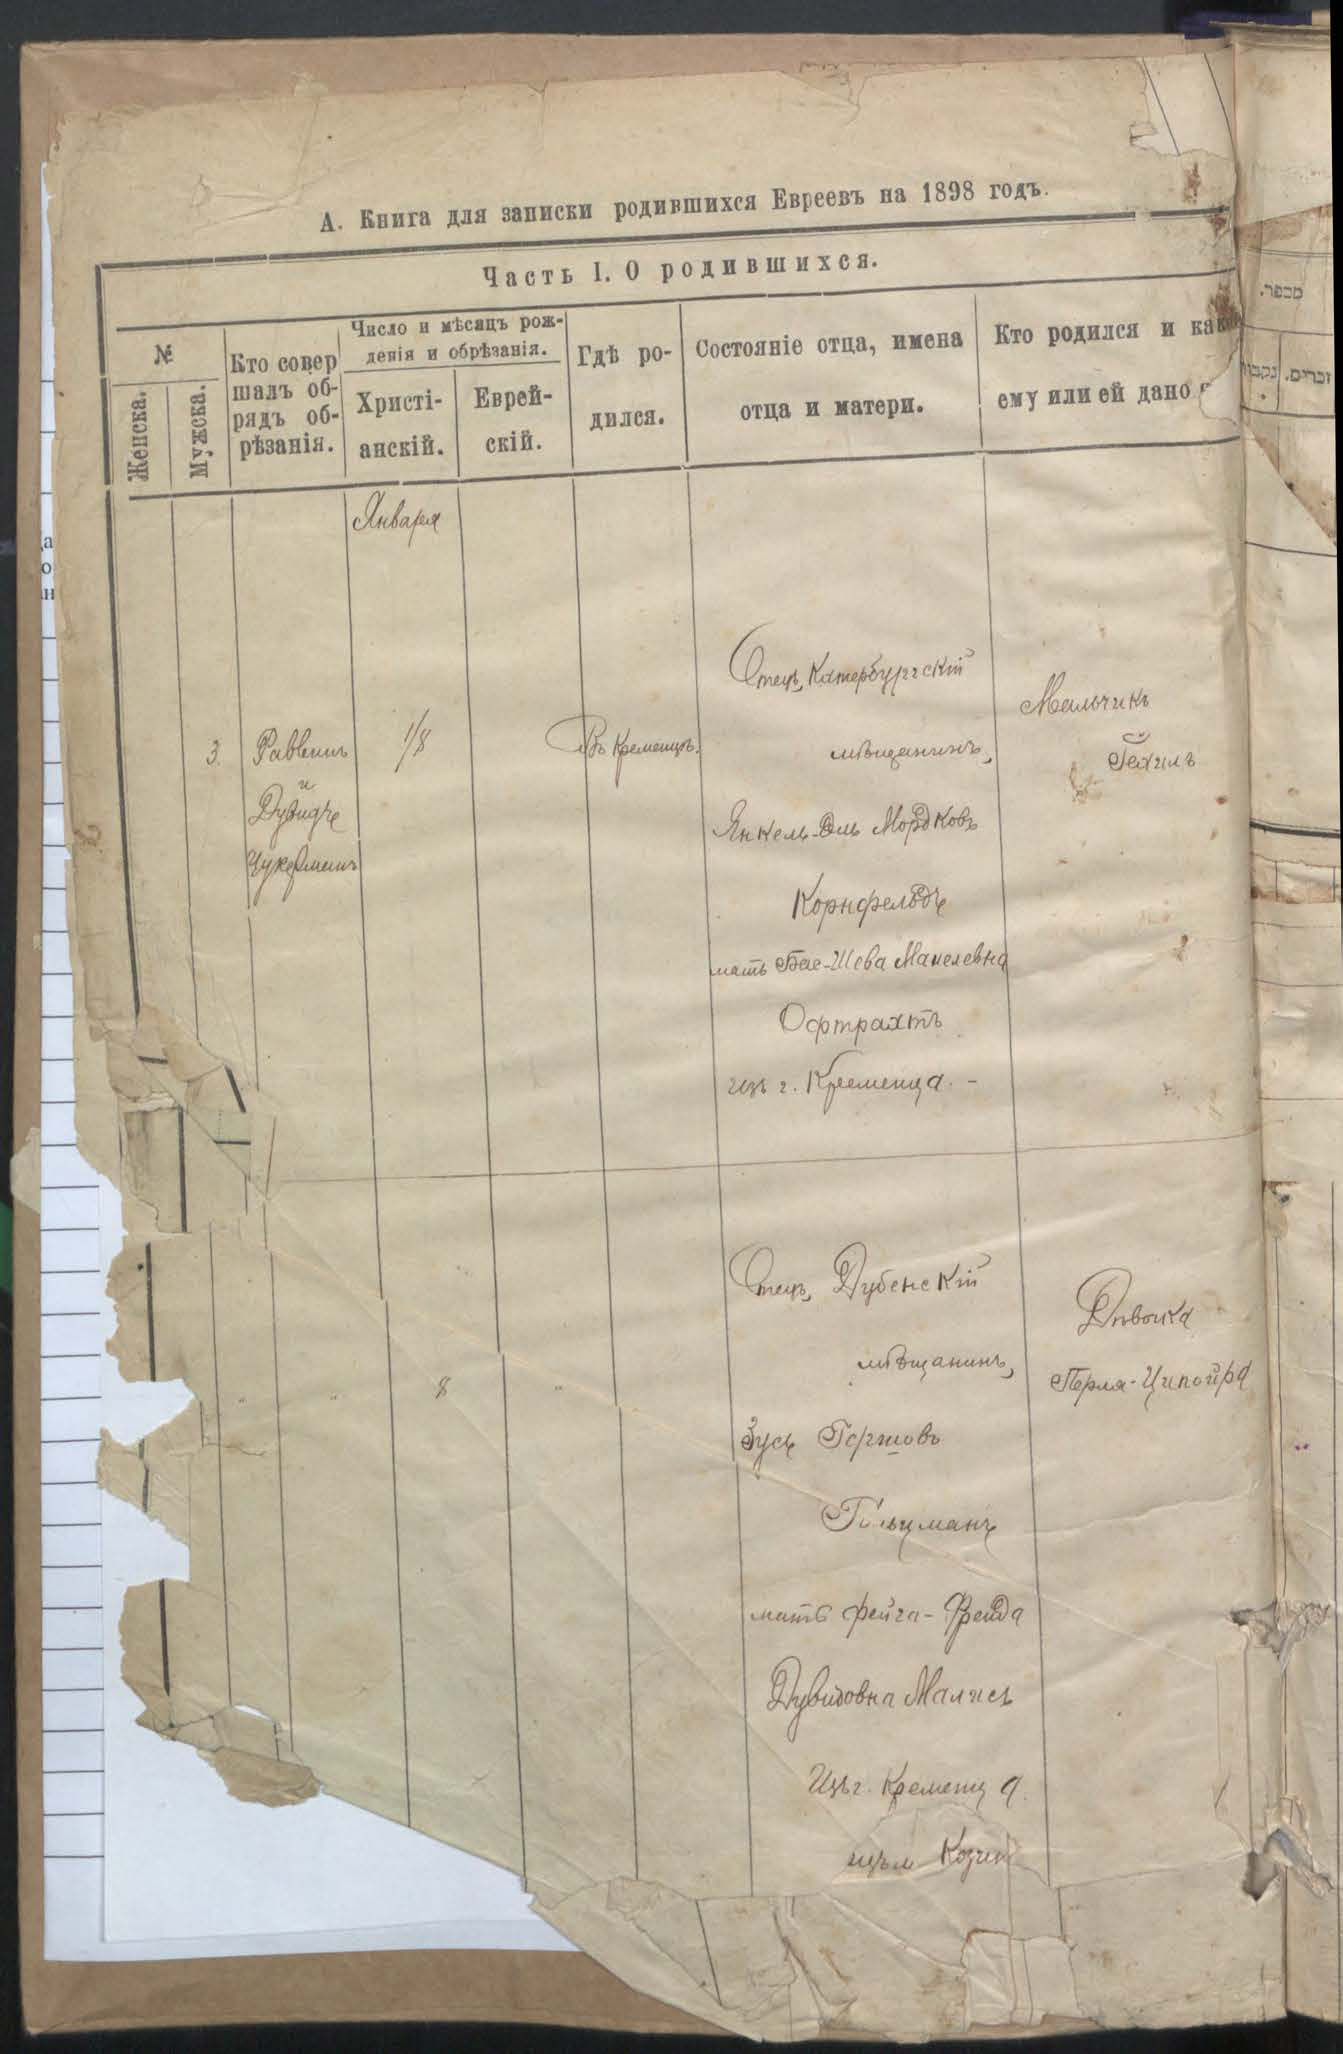 А. Книга для записки родившихся Евреевъ на 1898 годъ.
Часть I. О родившихся.
№
Женска.
Мужска.
Кто совер
шалъ об-
рядъ об-
рѣзанія.
Число и мѣсяцъ рож-
денія и обрѣзанія.
Христі-
анскій.
Еврей-
скій.
Гдѣ ро-
дился.
Состояніе отца, имена
отца и матери.
Кто родился и
ему или ей дано
Января
3.
Раввинъ
и
Дувидъ
Цукерманъ
1/8
Въ Кременцѣ.
Отецъ, Катербургскій
мѣщанинъ,
Янкель-Эль Мордковъ
Корнфельдъ
мать Бас-Шева Манелевна
Офтрахтъ
изъ г. Кременца. -
Мальчикъ
Іехилъ
"
"
8
"
Отецъ, Дубенскій
мѣщанинъ,
Зусь Гершовъ
Гольцманъ
мать Фейга-Фрейда
Дувидовна Малисъ
Изъ г. Кременца.
изъ м
Дѣвочка
Перля-Ципойра
מספר.
נקבות.
זכרים.